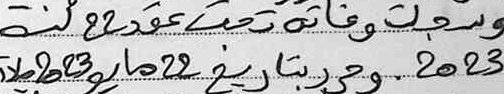 وسجلت وفاته تحت عقد 22 لسنة
2023. وحرر بتاريخ 22 مايو 2023